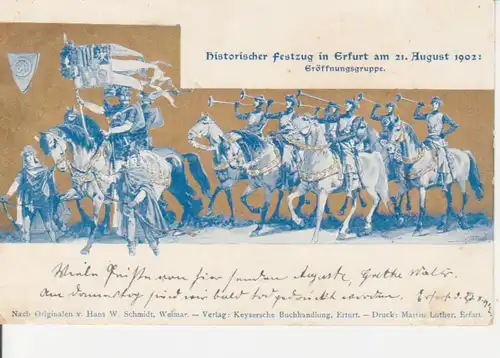 Historischer Festzug in Erfurt am 21. August 1902:
Eröffnungsgruppe.
Viele Grüße von hier senden Auguste, Grethe Walter.
Am Donnerstag sind wir bald tot gedrückt worden. Erfurt d.
Nach Originalen v. Hans W. Schmidt, Weimar. – Verlag: Keysersche Buchhandlung, Erfurt. – Druck: Martin Luther, Erfurt.